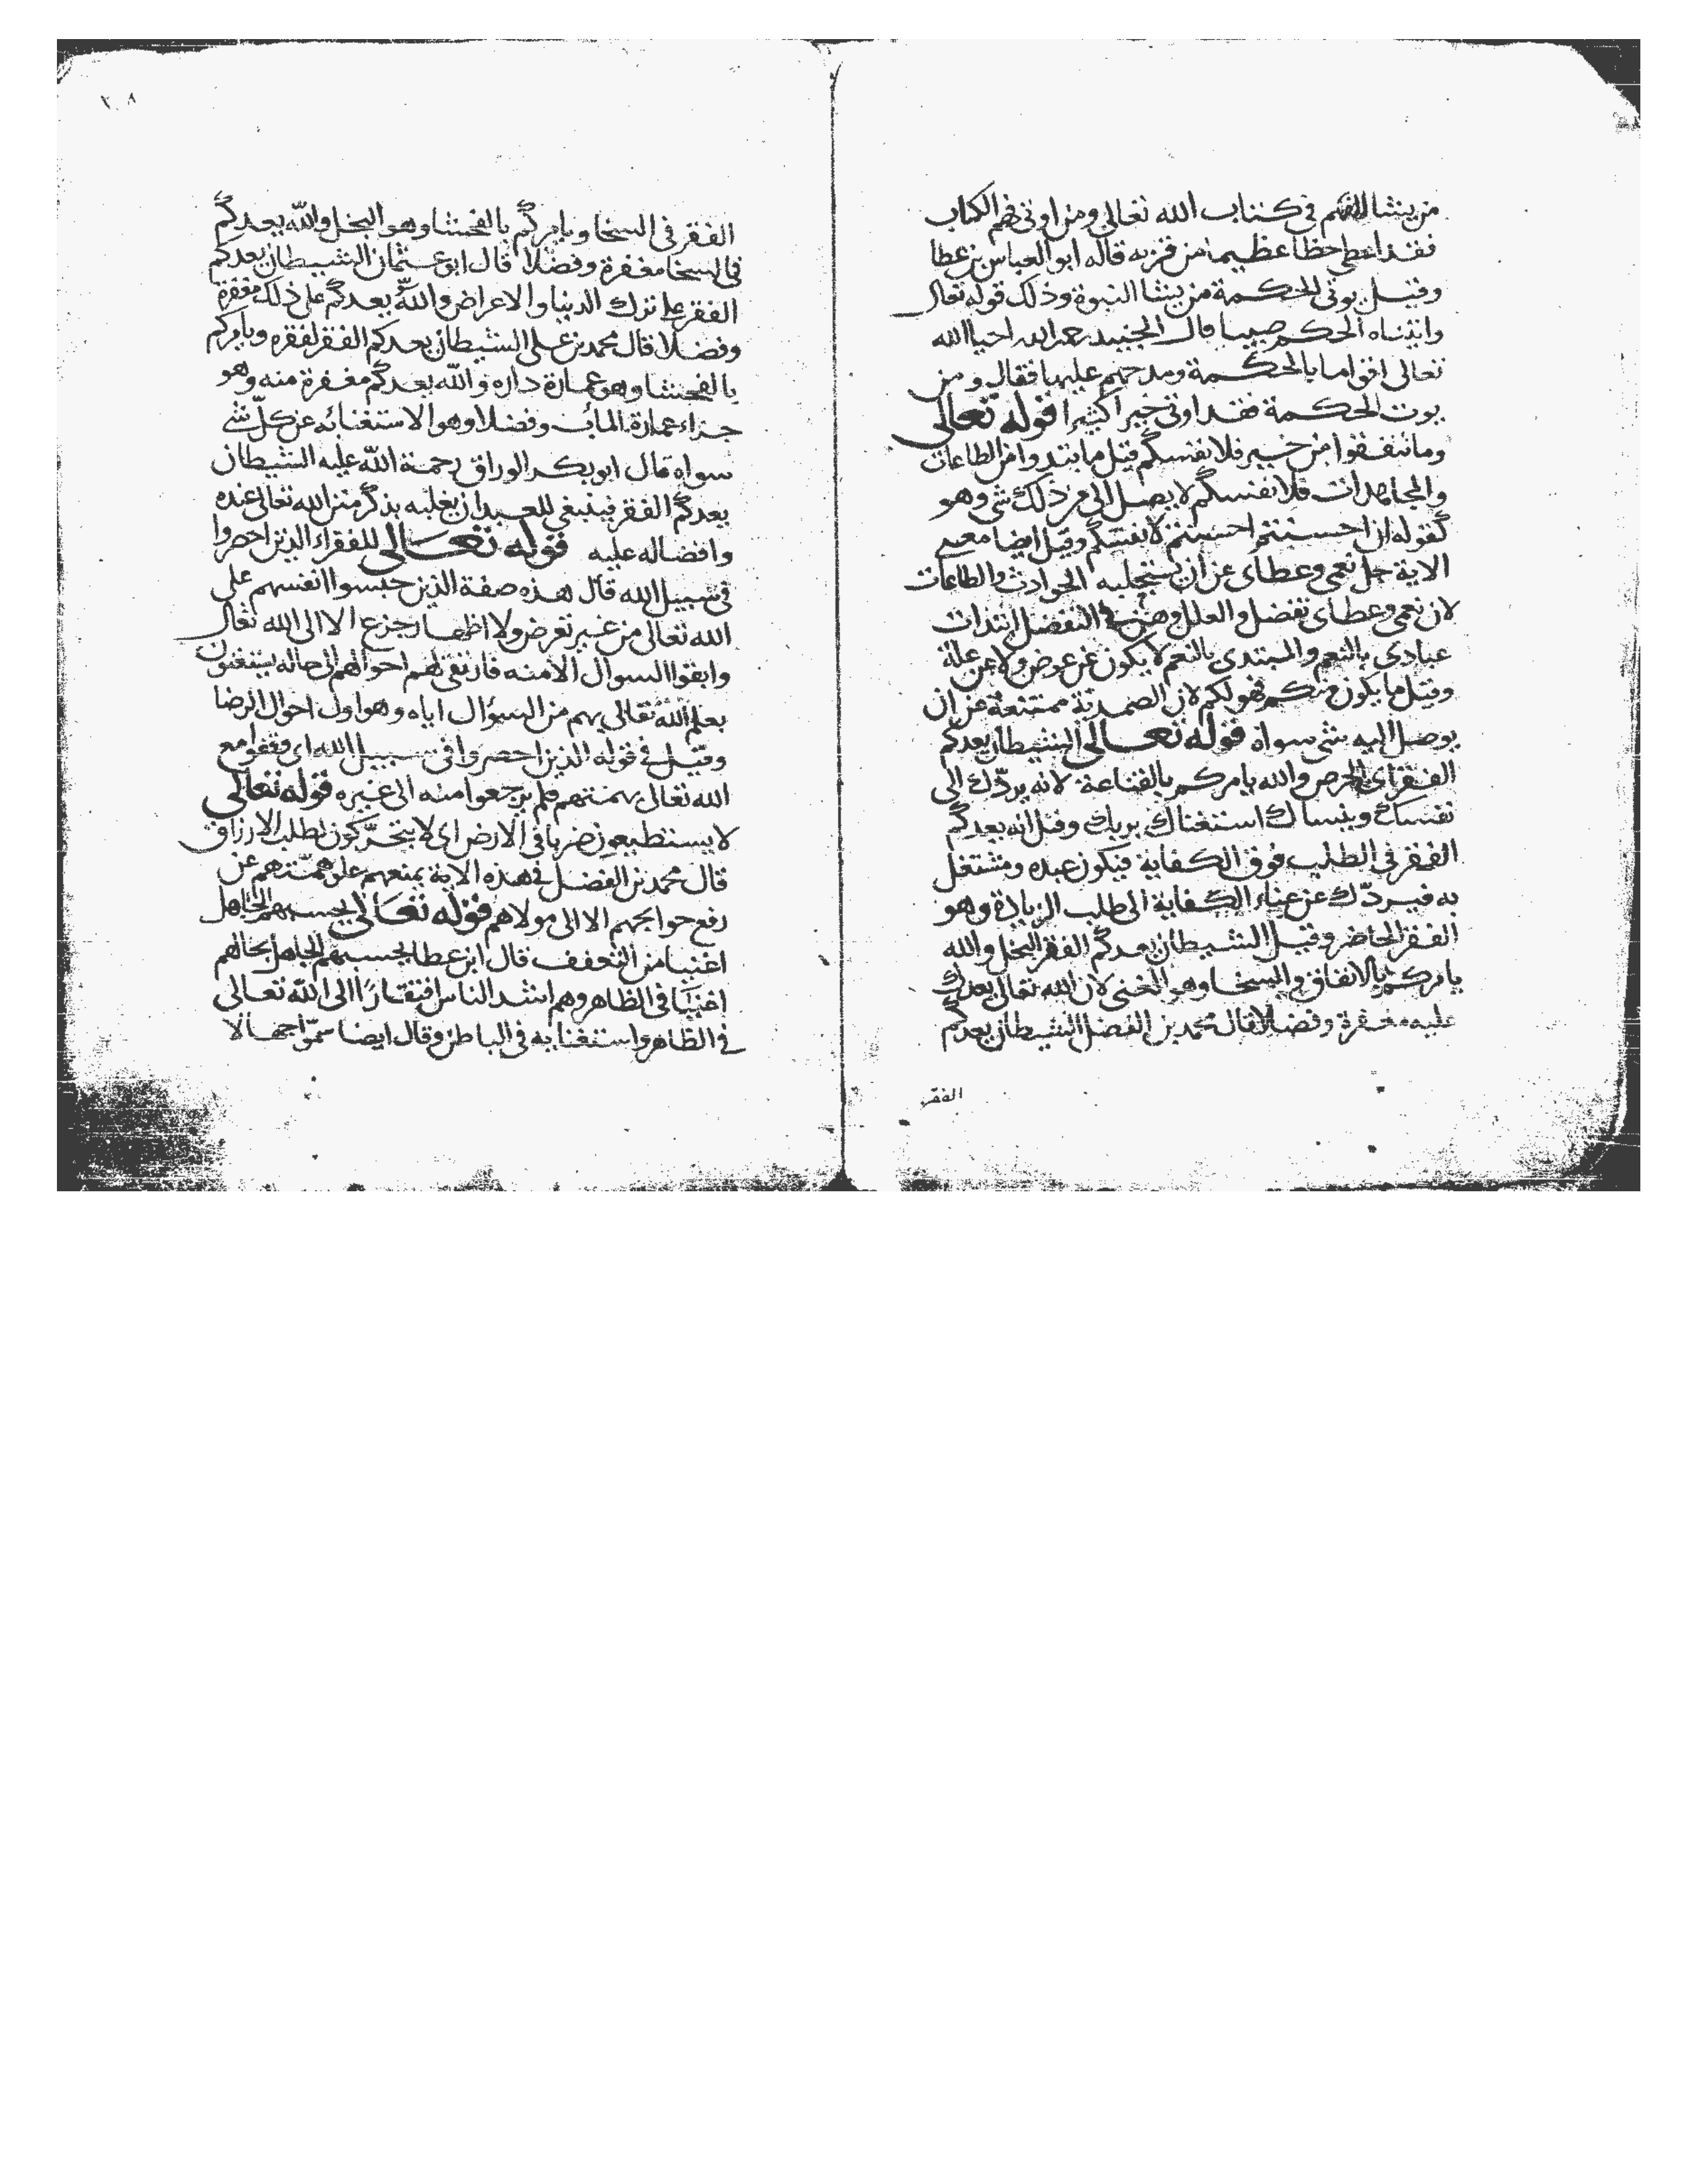 من يشا الفهم في كتاب الله تعالى ومن اوتى فهم الكتاب
فقد اعطى حظا عظيما من قربه قاله ابو العباس بن عطا
وقيل يوتى الحكمة من يشا النبوة وذلك قوله تعالى
واتيناه الحكم صبيا قال الجنيد رحمه الله احيا الله
تعالى اقواما بالحكمة ومدحهم عليها فقال ومن
يوت الحكمة فقد اوتى خيرا كثيرا قوله تعالى
وما تنفقوا من خير فلانفسكم قيل ما بتدوا من الطاعات
والمجاهدات فلانفسكم لا يصل الى من ذلك شى وهو
كقوله ان احسنتم احسنتم لانفسكم وقيل ايضا معنى
الاية جل نعمى وعطاى عن ان يستجلبه الحوادث والطاعات
لان نعمى وعطاى تفضل والعلل وهنت في التفضل ابتدات
عبادى بالنعم والمبتدى بالنعم لا يكون عن عوض ولا عن علة
وقيل ما يكون منكم فهو لكم لان الصمدية ممتنعة من ان
يوصل اليه شى سواه قوله تعالى الشيطان يعدكم
الفقر اى الحرص والله يامركم بالقناعة لانه يردّك الى
نفسك وينساك استغناك بربك وقيل انه يعدكم
الفقر في الطلب فوق الكفاية فيكون عبده ومشتغل
به فيردّك عن عناء الكفاية الى طلب الزيادة وهو
الفقر الحاضر وقيل الشيطان يعدكم الفقر البخل والله
يامركم بالانفاق والسخا وهو الغنى لان الله تعالى يعدك
عليه مغفرة وفضلا قال محمد بن الفضل الشيطان يعدكم
الفقر
٢٠٨
الفقر في السخا ويامركم بالفحشا وهو البخل والله يعدكم
في السخا مغفرة وفضلا قال ابو عثمان الشيطان يعدكم
الفقر على ترك الدنيا والاعراض والله يعدكم على ذلك مغفرة
وفضلا قال محمد بن على الشيطان يعدكم الفقر لفقره ويامركم
بالفحشا وهو عمارة داره والله يعدكم مغفرة منه وهو
جزاء عمارة الماب وفضلا وهو الاستغنا به عن كلّ شى
سواه قال ابو بكر الوراق رحمة الله عليه الشيطان
يعدكم الفقر فينبغي للعبد ان يغلبه بذكر منن الله تعالى عنده
وافضاله عليه قوله تعالى للفقراء الذين احصروا
في سبيل الله قال هذه صفة الذين حبسوا انفسهم على
الله تعالى من غير تعرض ولا اظهار جزع الا الى الله تعالى
وابقوا السوال الا منه فارتقى لهم احوالهم الى حاله يستغنون
بعلم الله تعالى بهم من السؤال اياه وهو اول احوال الرضا
وقيل في قوله الذين احصروا في سبيل الله اى وقفوا مع
الله تعالى بهمتهم فلم يرجعوا منه الى غيره قوله تعالى
لا يستطيعون ضربا في الارض اى لا يتحرّكون لطلب الارزاق
قال محمد بن الفضل في هذه الاية يمنعهم علو همّتهم عن
رفع حوايجهم الا الى مولاهم قوله تعالى يحسبهم الجاهل
اغنيا من التعفف قال ابن عطا يحسبهم الجاهل بحالهم
اغنيا في الظاهر وهم اشد الناس افتقارًا الى الله تعالى
في الظاهر واستغنا به في الباطن وقال ايضا سمّوا جهالا